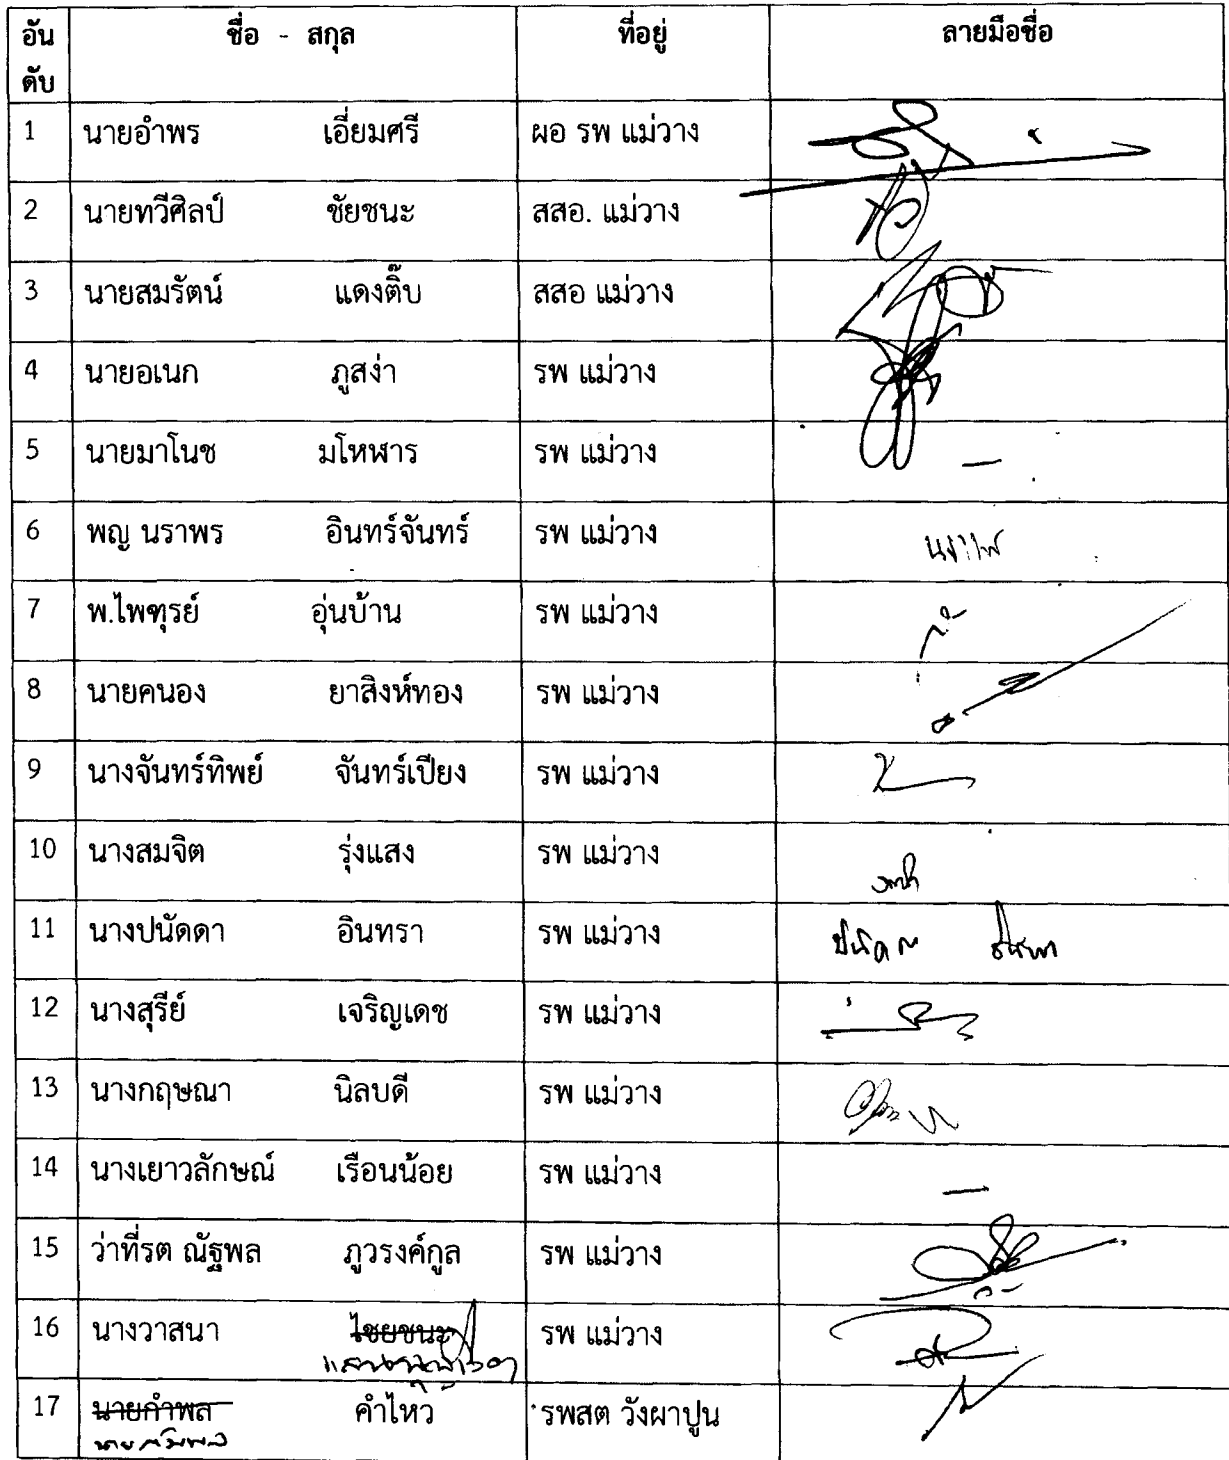 อัน ชื่อ - สกุล ที่อยู่ ลายมือชื่อ
ดับ
1 นายอำพร เอี่ยมศรี ผอ รพ แม่วาง
2 นายทวีศิลป์ ชัยชนะ สสอ. แม่วาง
3 นายสมรัตน์ แดงติ๊บ สสอ แม่วาง
4 นายอเนก ภูสง่า รพ แม่วาง
5 นายมาโนช มโหฬาร รพ แม่วาง –
6 พญ นราพร อินทร์จันทร์ รพ แม่วาง
7 พ.ไพฑูรย์ อุ่นบ้าน รพ แม่วาง
8 นายคนอง ยาสิงห์ทอง รพ แม่วาง
9 นางจันทร์ทิพย์ จันทร์เปียง รพ แม่วาง
10 นางสมจิต รุ่งแสง รพ แม่วาง
11 นางปนัดดา อินทรา รพ แม่วาง ปนัดดา อินทรา
12 นางสุรีย์ เจริญเดช รพ แม่วาง
13 นางกฤษณา นิลบดี รพ แม่วาง
14 นางเยาวลักษณ์ เรือนน้อย รพ แม่วาง –
15 ว่าที่รต ณัฐพล ภูวรงค์กูล รพ แม่วาง
16 นางวาสนา ไชยชนะ รพ แม่วาง
17 นายกำพล คำไหว รพสต วังผาปูน